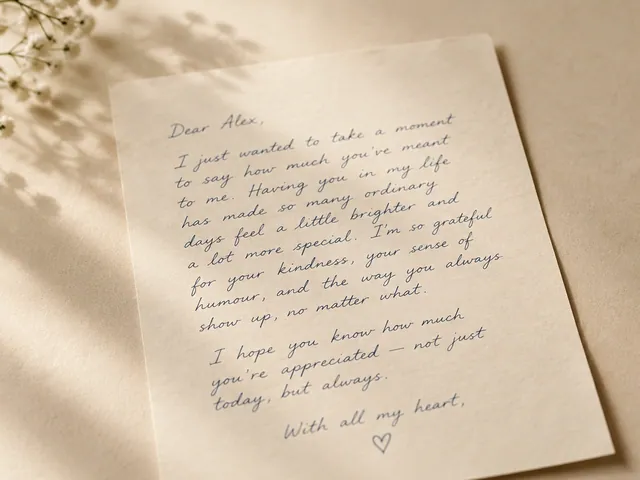 Dear Alex,
I just wanted to take a moment
to say how much you've meant
to me. Having you in my life
has made so many ordinary
days feel a little brighter and
a lot more special. I'm so grateful
for your kindness, your sense of
humour, and the way you always
show up, no matter what.
I hope you know how much
you're appreciated — not just
today, but always.
With all my heart,
♡